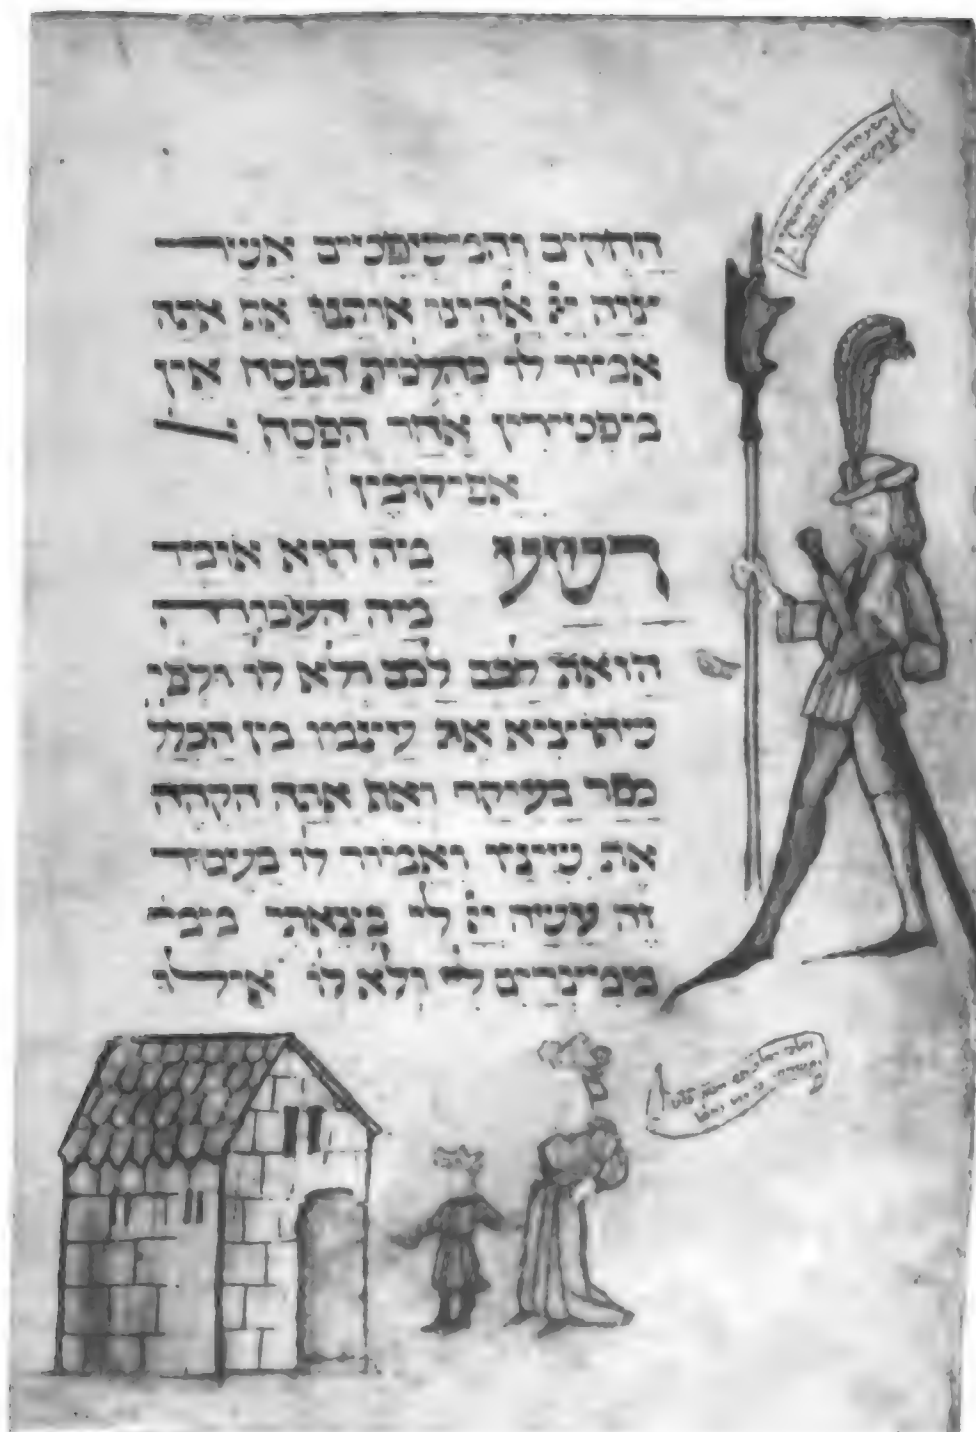 החקים והמשפטים אשר
צוה יי אלהינו אותנו אף אתה
אמור לו כהלכות הפסח אין
מפטירין אחר הפסח
אפיקומין
רשע מה הוא אומר
מה העבודה
הזאת לכם לכם ולא לו ולפי
שהוציא את עצמו מן הכלל
כפר בעיקר ואף אתה הקהה
את שיניו ואמור לו בעבור
זה עשה יי לי בצאתי ממ׳
ממצרים לי ולא לו אילו